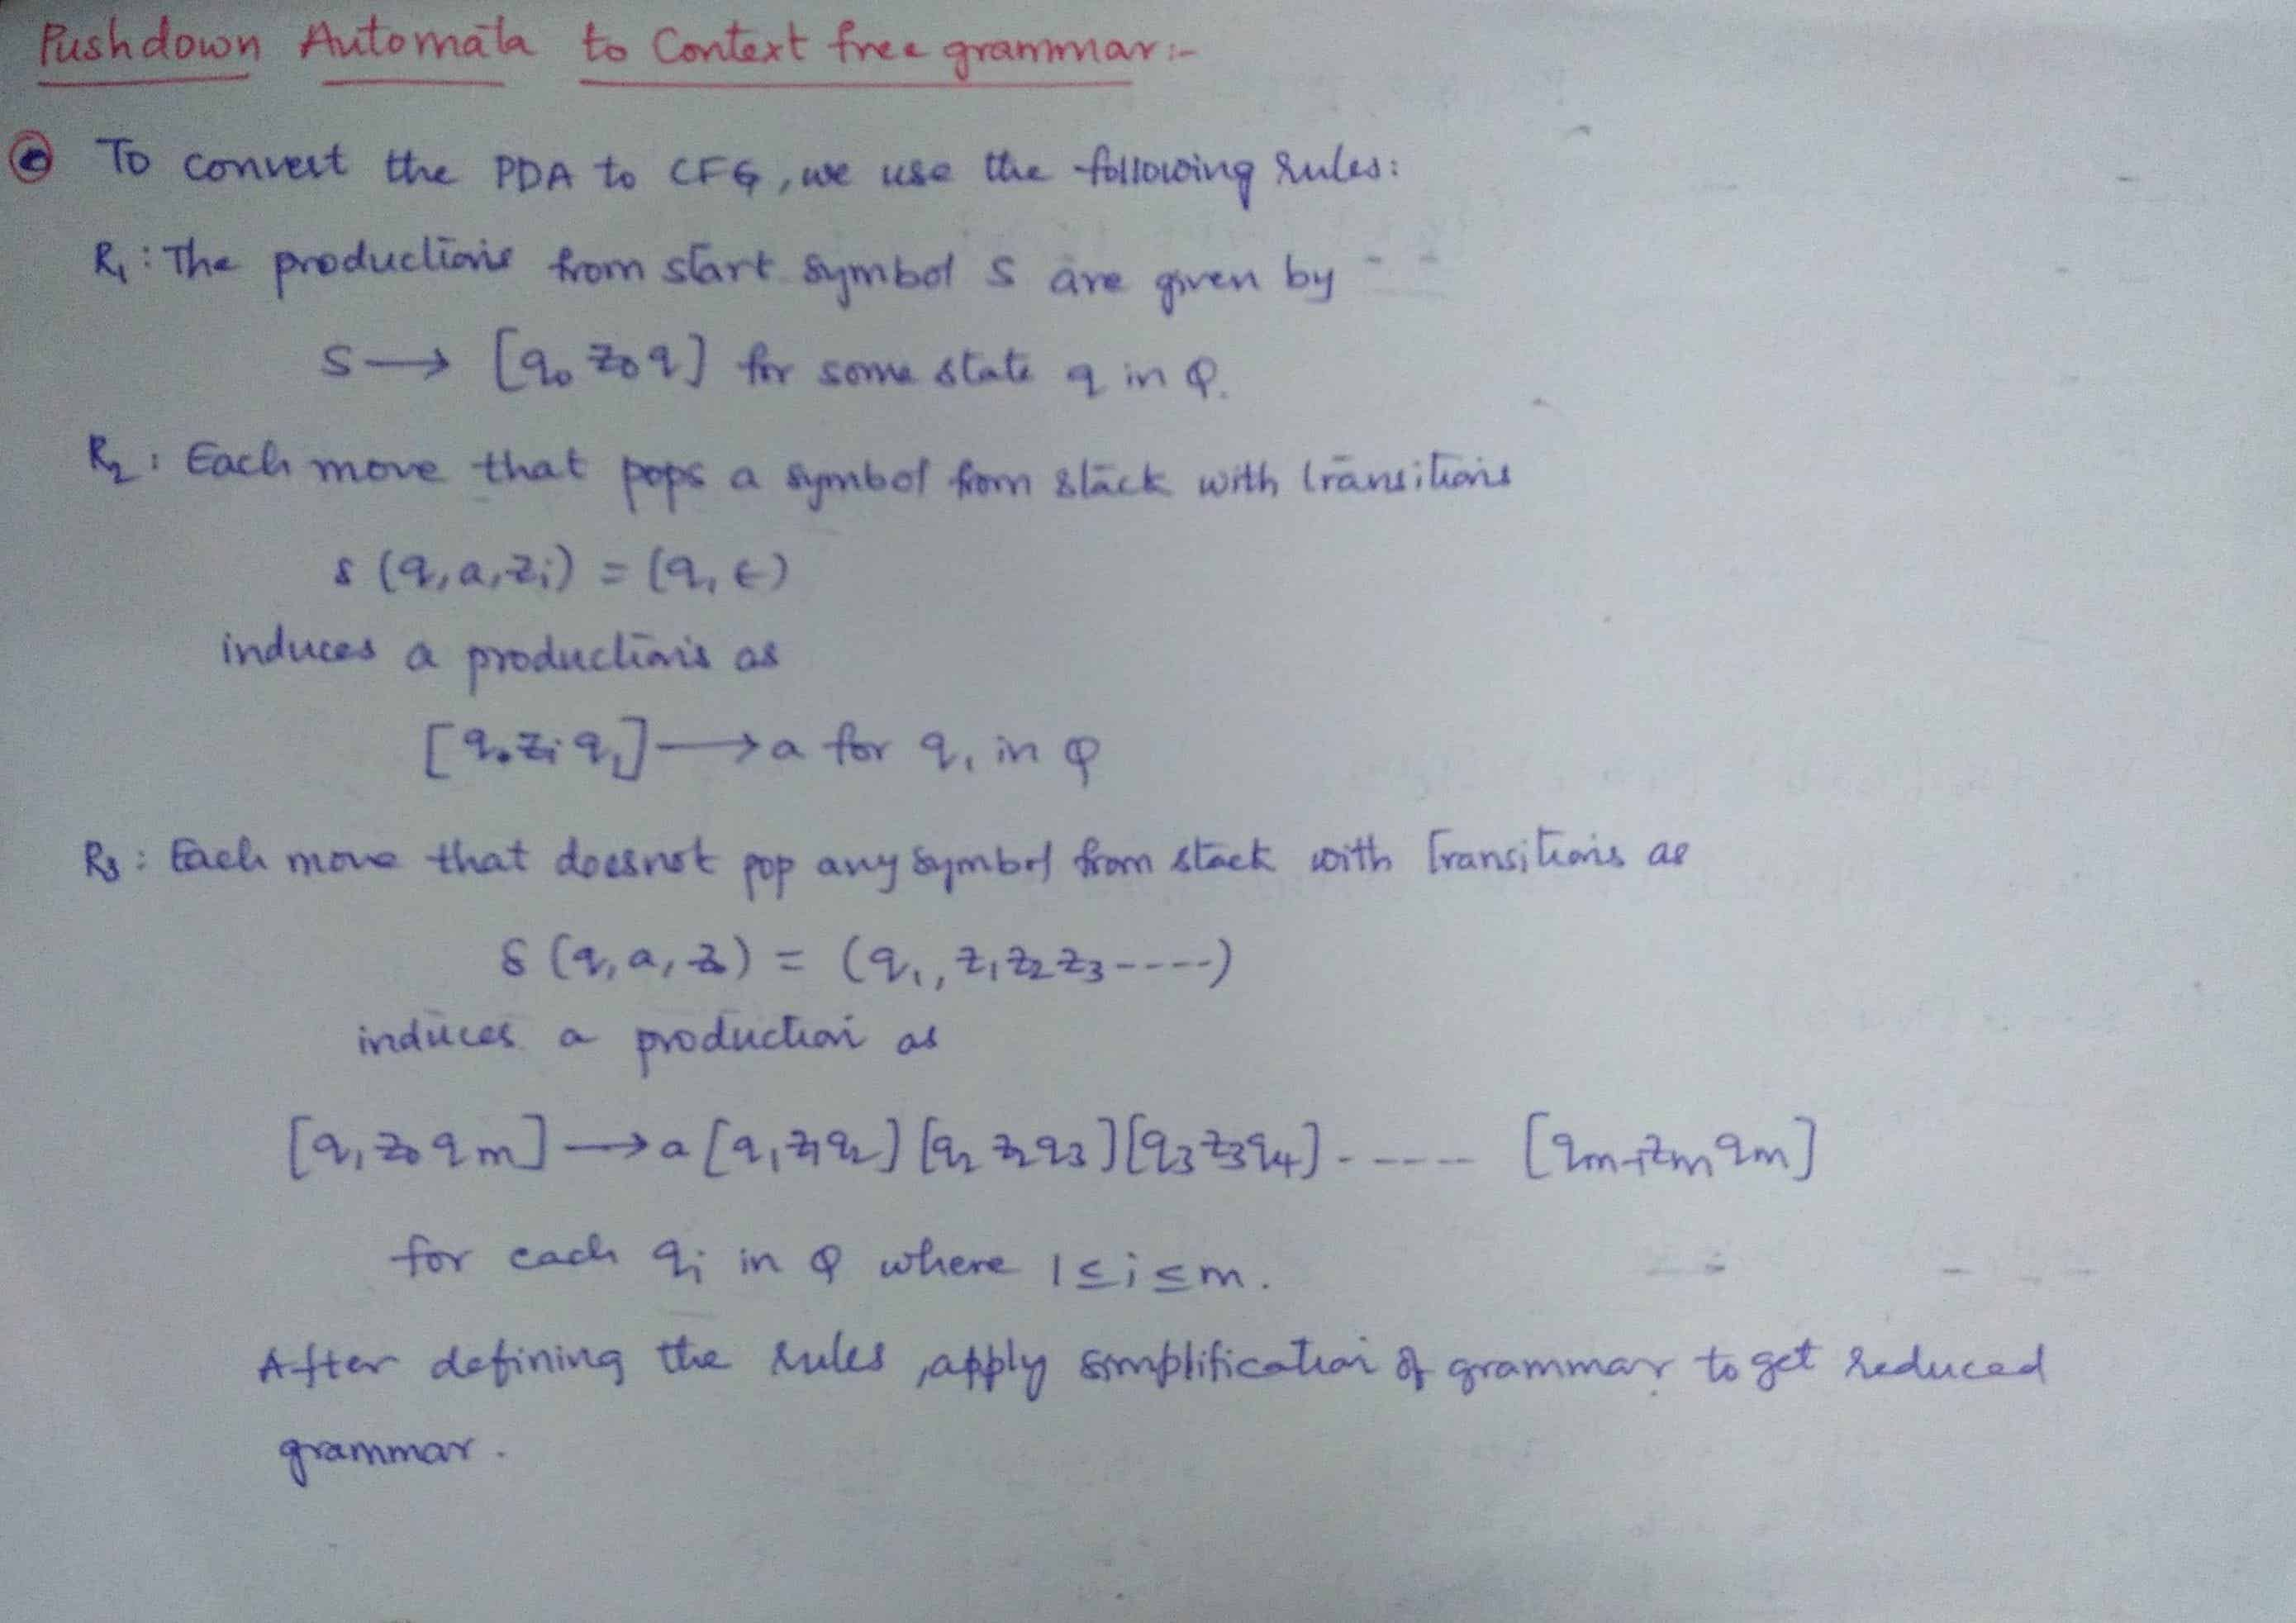 Pushdown Automata to Context free grammar:-
To convert the PDA to CFG, we use the following rules:
R₁: The productions from start symbol S are given by
S → [q₀ z₀ q] for some state q in Q.
R₂: Each move that pops a symbol from stack with transitions
δ (q, a, zᵢ) = (q₁ ε)
induces a productions as
[q₀ zᵢ q₁] → a for q₁ in Q
R₃: Each move that doesnot pop any symbol from stack with transitions as
δ (q, a, z₀) = (q₁, z₁ z₂ z₃ -----)
induces a production as
[q₁ z₀ qm] → a [q₁ z₁ q₂] [q₂ z₂ q₃] [q₃ z₃ q₄] ------ [qm-1 zm qm]
for each qᵢ in Q where 1 ≤ i ≤ m.
After defining the rules, apply simplification of grammar to get reduced
grammar.